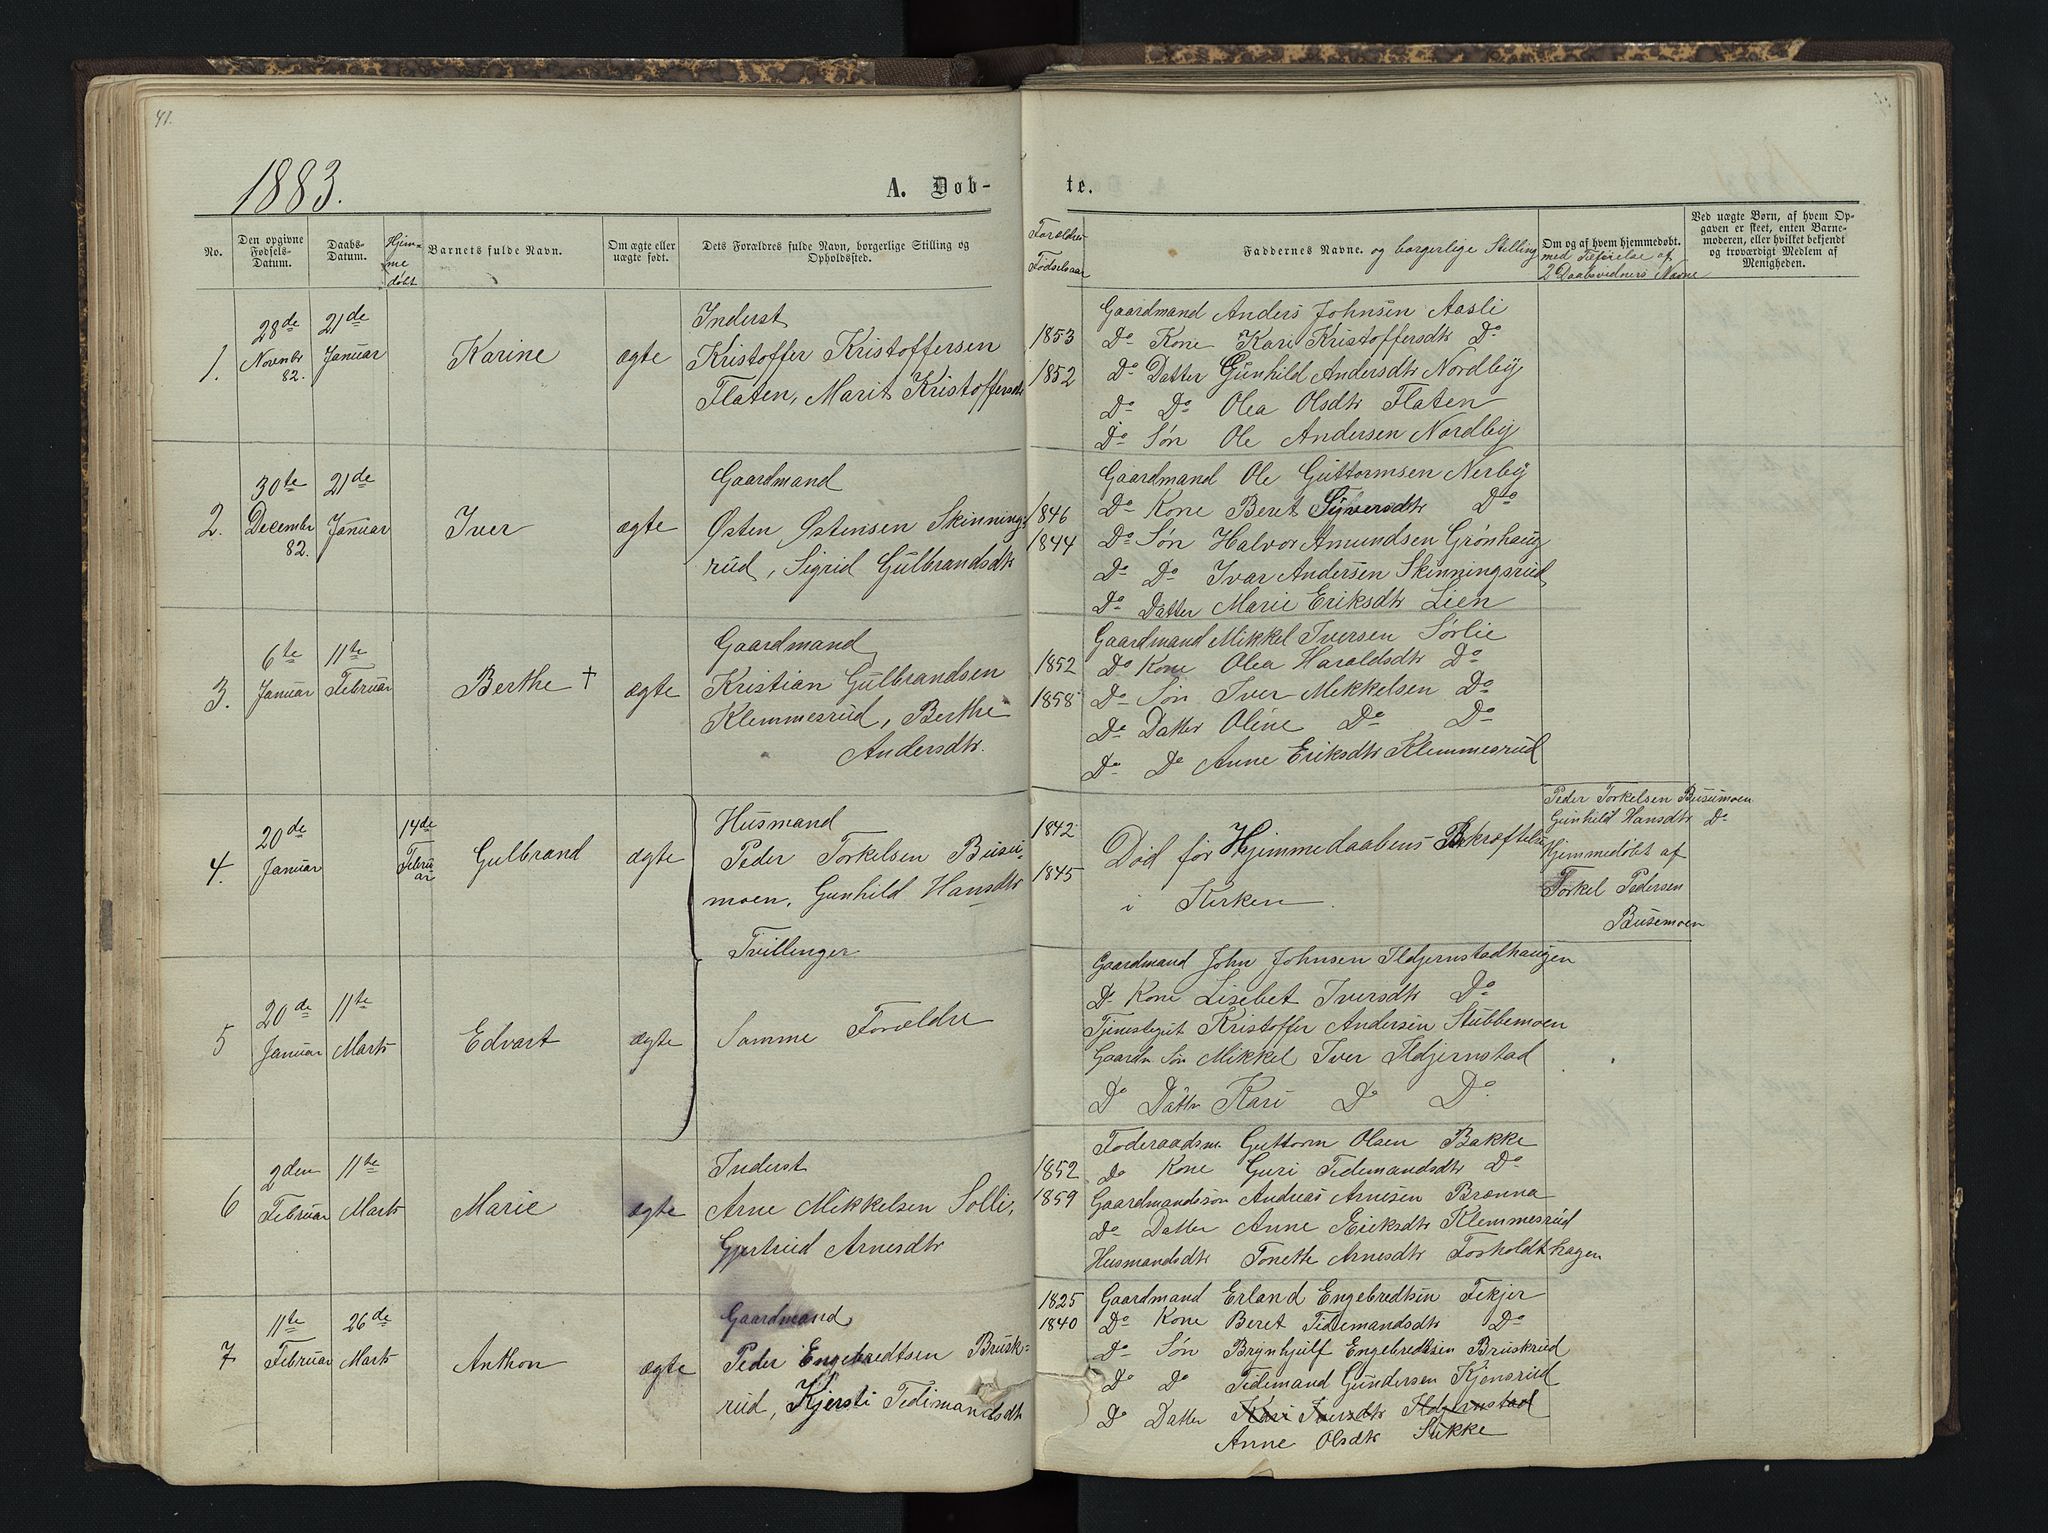 41.
1883.
A. Døb-
te.
No.
Den opgivne Fødsels-Datum.
Daabs-Datum.
Hjemmedøbt
Barnets fulde Navn.
Om ægte eller uægte født.
Dets Forældres fulde Navn, borgerlige Stilling og Opholdssted.
Forældres Fødselsaar
Faddernes Navne. og borgerlige Stilling
Om og af hvem hjemmedøbt.
med Tilføielse af
2 Daabsvidners Navne
Ved uægte Børn, af hvem Op-
gaven er skeet, enten Barne-
moderen, eller hvilket bekjendt
og troværdigt Medlem af
Menigheden.
1.
28de Novmbr 82.
21de Januar
Karine
ægte
Inderst
Kristoffer Kristoffersen
Flaten, Marit Kristoffersdtr
1853
1852
Gaardmand Anders Johnsen Aasli
Do Kone Kari Kristoffersdtr Do
Do Datter Gunhild Andersdtr Nordby
Do Do Olea Olsdtr Flaten
Do Søn Ole Andersen Nordby
2.
30te Decembr 82.
21de Januar
Iver
ægte
Gaardmand
Østen Østensen Skinnings-
rud, Sigrid Gulbrandsdtr
1846
1844
Gaardmand Ole Guttormsen Nerby
Do Kone Beret Syversdtr Do
Do Søn Halvor Amundsen Grønhaug
Do Do Ivar Andersen Skinningsrud
Do Datter Marie Eriksdtr Lien
3.
6te Januar
11te Februar
Berthe †
ægte
Gaardmand
Kristian Gulbrandsen
Klemmesrud, Berthe
Andersdtr.
1852
1858
Gaardmand Mikkel Iversen Sørlie
Do Kone Olea Haraldsdtr Do
Do Søn Iver Mikkelsen Do
Do Datter Oline Do Do
Do Do Anne Eriksdtr Klemmesrud
4.
20de Januar
14de Februar
Gulbrand
ægte
Husmand
Peder Torkelsen Busu-
moen, Gunhild Hansdtr
Tvillinger
1842
1845
Død før Hjemmedaabens Bekræftelse
i Kirken.
Peder Torkelsen Busumoen
Gunhild Hansdtr Do
Hjemmedøbt af
Torkel Pedersen
Busemoen
5
20de Januar
11te Marts
Edvart
ægte
Samme Forældre
Gaardmand John Johnsen Ildjernstadhaugen
Do Kone Lisebet Iversdtr Do
Tjenestegut Kristoffer Andersen Stubbemoen
Gaardm Søn Mikkel Iver Ildjernstad
Do Datter Kari Do Do
6
2den Februar
11te Marts
Marie
ægte
Inderst
Arne Mikkelsen Solli,
Gjertrud Arnesdtr
1852
1859
Foderaadsm. Guttorm Olsen Bakke
Do Kone Guri Tidemandsdtr Do
Gaardmandssøn Andreas Arnesen Brænna
Do Datter Anne Eriksdtr Klemmesrud
Husmandsdtr Tonette Arnesdtr Fosholdthagen
7
11te Februar
26de Marts
Anthon
ægte
Gaardmand
Peder Engebredtsen Brusk-
rud, Kjersti Tedimandsdtr
1825
1840
Gaardmand Erland Engebredtsen Tekjer
Do Kone Beret Tidemandsdtr Do
Do Søn Brynhjulf Engebredtsen Bruskrud
Do Do Tidemand Gundersen Kjensrud
Do Datter Kari Iversdtr Ildjernstad
Anne Olsdtr Sukke